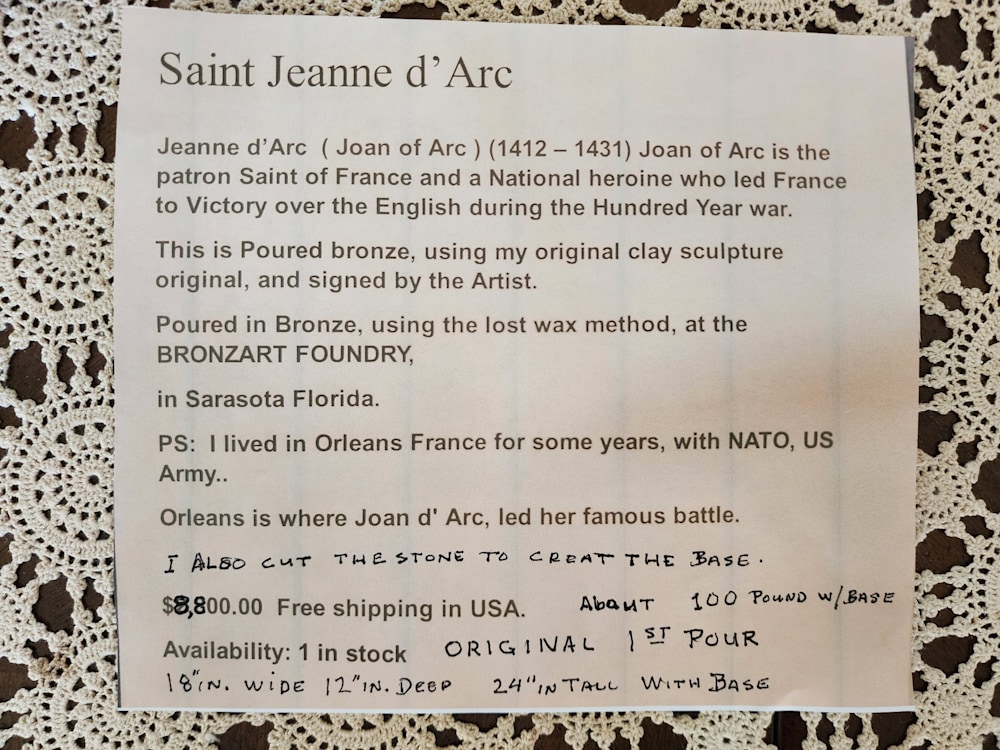 Saint Jeanne d’Arc
Jeanne d’Arc ( Joan of Arc ) (1412 – 1431) Joan of Arc is the
patron Saint of France and a National heroine who led France
to Victory over the English during the Hundred Year war.
This is Poured bronze, using my original clay sculpture
original, and signed by the Artist.
Poured in Bronze, using the lost wax method, at the
BRONZART FOUNDRY,
in Sarasota Florida.
PS: I lived in Orleans France for some years, with NATO, US
Army..
Orleans is where Joan d' Arc, led her famous battle.
I ALSO CUT THE STONE TO CREAT THE BASE.
$8,800.00 Free shipping in USA. ABOUT 100 POUND W/BASE
Availability: 1 in stock ORIGINAL 1ST POUR
18"IN. WIDE 12"IN. DEEP 24"IN TALL WITH BASE